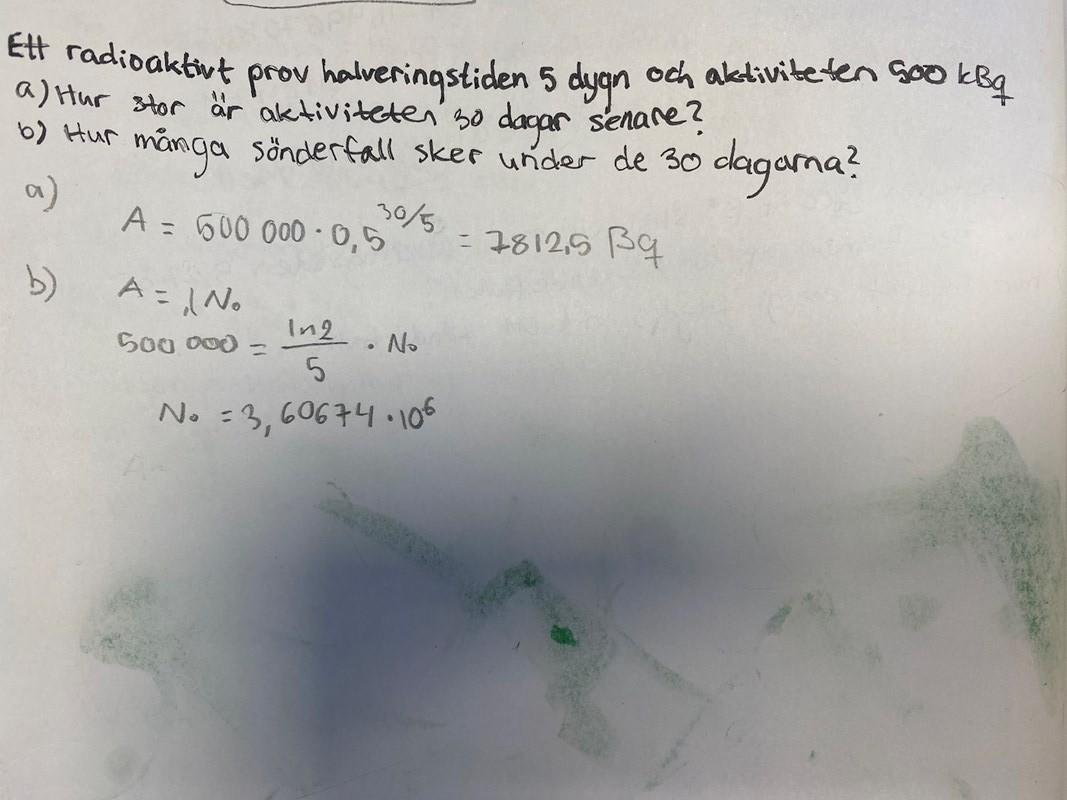 Ett radioaktivt prov halveringstiden 5 dygn och aktiviteten 500 kBq
a) Hur stor är aktiviteten 30 dagar senare?
b) Hur många sönderfall sker under de 30 dagarna?
a)
A = 500 000 · 0,5^30/5 = 7812,5 Bq
b) A = λN₀
500 000 = ln2/5 · N₀
N₀ = 3,60674 · 10⁶